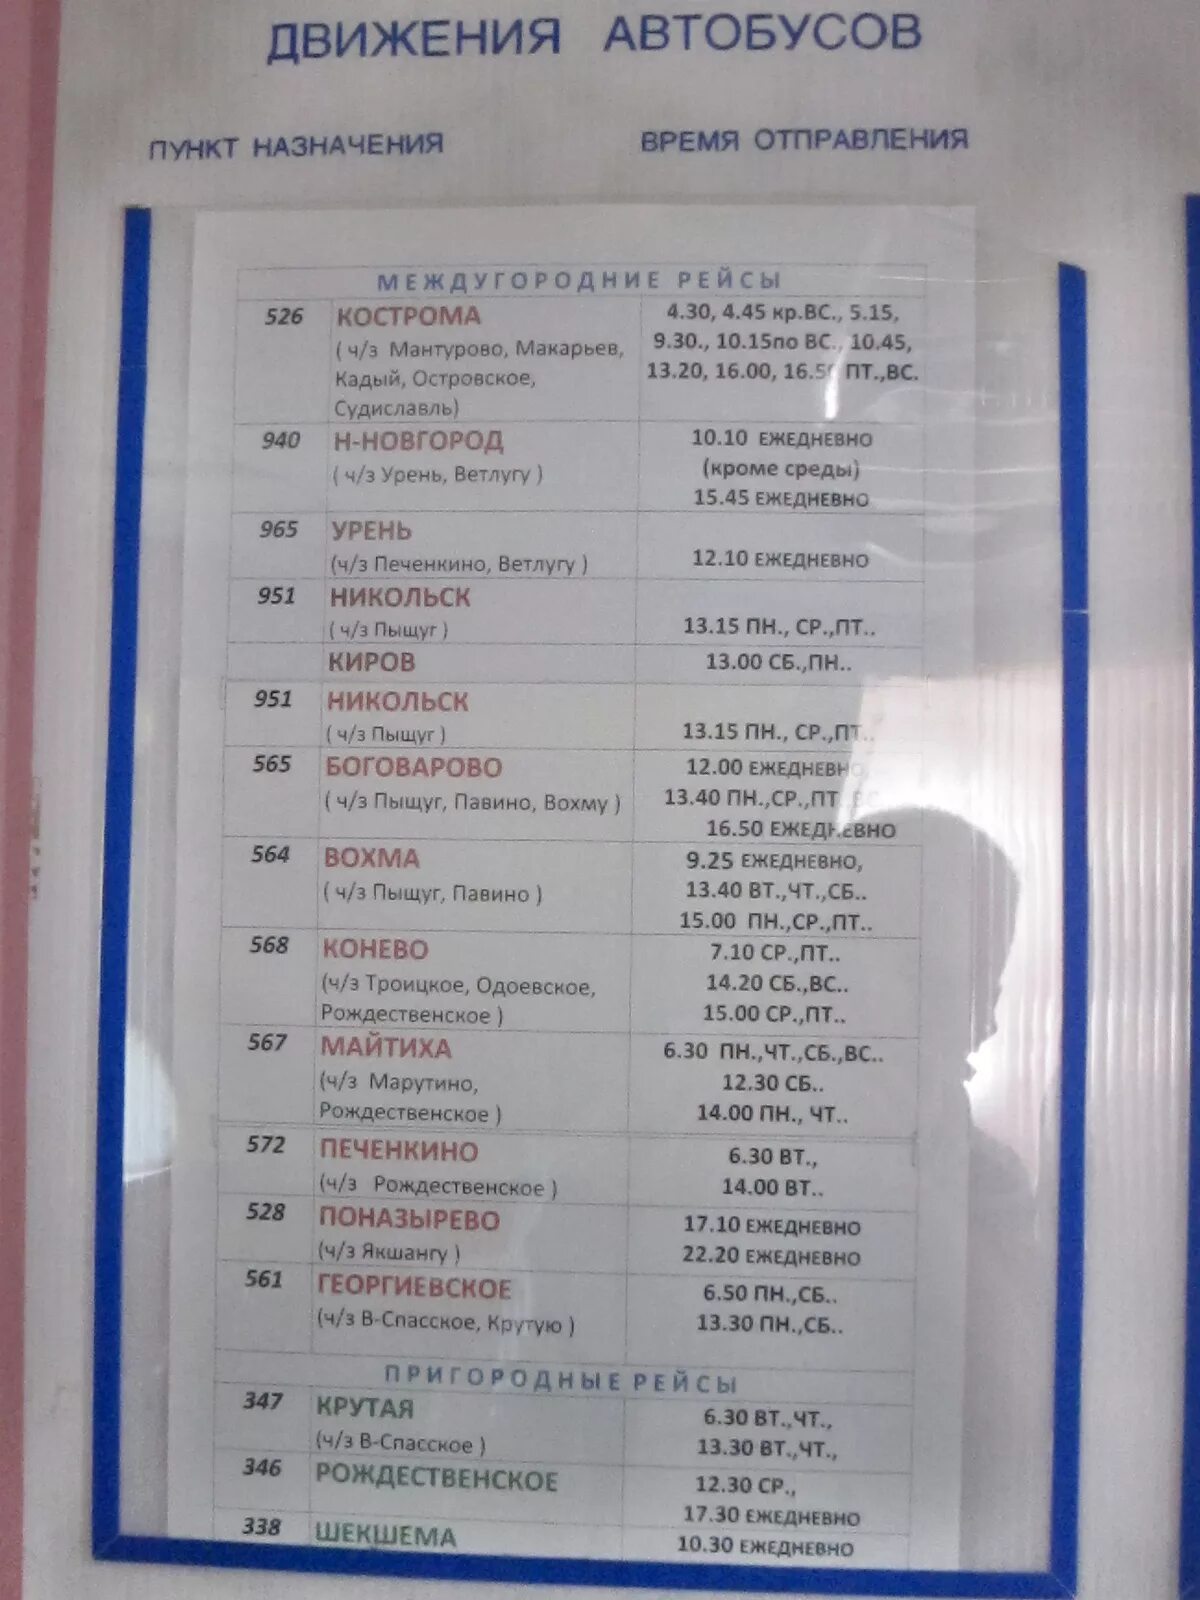 ДВИЖЕНИЯ АВТОБУСОВ
ПУНКТ НАЗНАЧЕНИЯ ВРЕМЯ ОТПРАВЛЕНИЯ
МЕЖДУГОРОДНИЕ РЕЙСЫ
526 КОСТРОМА 4.30, 4.45 кр.ВС., 5.15,
( ч/з Мантурово, Макарьев, 9.30., 10.15по ВС., 10.45,
Кадый, Островское, 13.20, 16.00, 16.50 ПТ.,ВС.
Судиславль)
940 Н-НОВГОРОД 10.10 ЕЖЕДНЕВНО
( ч/з Урень, Ветлугу ) (кроме среды)
15.45 ЕЖЕДНЕВНО
965 УРЕНЬ
(ч/з Печенкино, Ветлугу ) 12.10 ЕЖЕДНЕВНО
951 НИКОЛЬСК
( ч/з Пыщуг ) 13.15 ПН., СР.,ПТ..
КИРОВ 13.00 СБ.,ПН..
951 НИКОЛЬСК
( ч/з Пыщуг ) 13.15 ПН., СР.,ПТ..
565 БОГОВАРОВО 12.00 ЕЖЕДНЕВНО,
( ч/з Пыщуг, Павино, Вохму ) 13.40 ПН.,СР.,ПТ.,ВС.
16.50 ЕЖЕДНЕВНО
564 ВОХМА 9.25 ЕЖЕДНЕВНО,
( ч/з Пыщуг, Павино ) 13.40 ВТ.,ЧТ.,СБ..
15.00 ПН.,СР.,ПТ..
568 КОНЕВО 7.10 СР.,ПТ..
(ч/з Троицкое, Одоевское, 14.20 СБ.,ВС..
Рождественское ) 15.00 СР.,ПТ..
567 МАЙТИХА 6.30 ПН.,ЧТ.,СБ.,ВС..
(ч/з Марутино, 12.30 СБ..
Рождественское ) 14.00 ПН., ЧТ..
572 ПЕЧЕНКИНО 6.30 ВТ.,
(ч/з Рождественское ) 14.00 ВТ..
528 ПОНАЗЫРЕВО 17.10 ЕЖЕДНЕВНО
(ч/з Якшангу ) 22.20 ЕЖЕДНЕВНО
561 ГЕОРГИЕВСКОЕ 6.50 ПН.,СБ..
(ч/з В-Спасское, Крутую ) 13.30 ПН.,СБ..
ПРИГОРОДНЫЕ РЕЙСЫ
347 КРУТАЯ 6.30 ВТ.,ЧТ.,
(ч/з В-Спасское ) 13.30 ВТ.,ЧТ.,
346 РОЖДЕСТВЕНСКОЕ 12.30 СР.,
17.30 ЕЖЕДНЕВНО
338 ШЕКШЕМА 10.30 ЕЖЕДНЕВНО